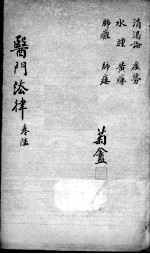 消渴論 虛勞
水腫 黃癉
肺癰 肺痿
菊盦
醫門法律 卷陸